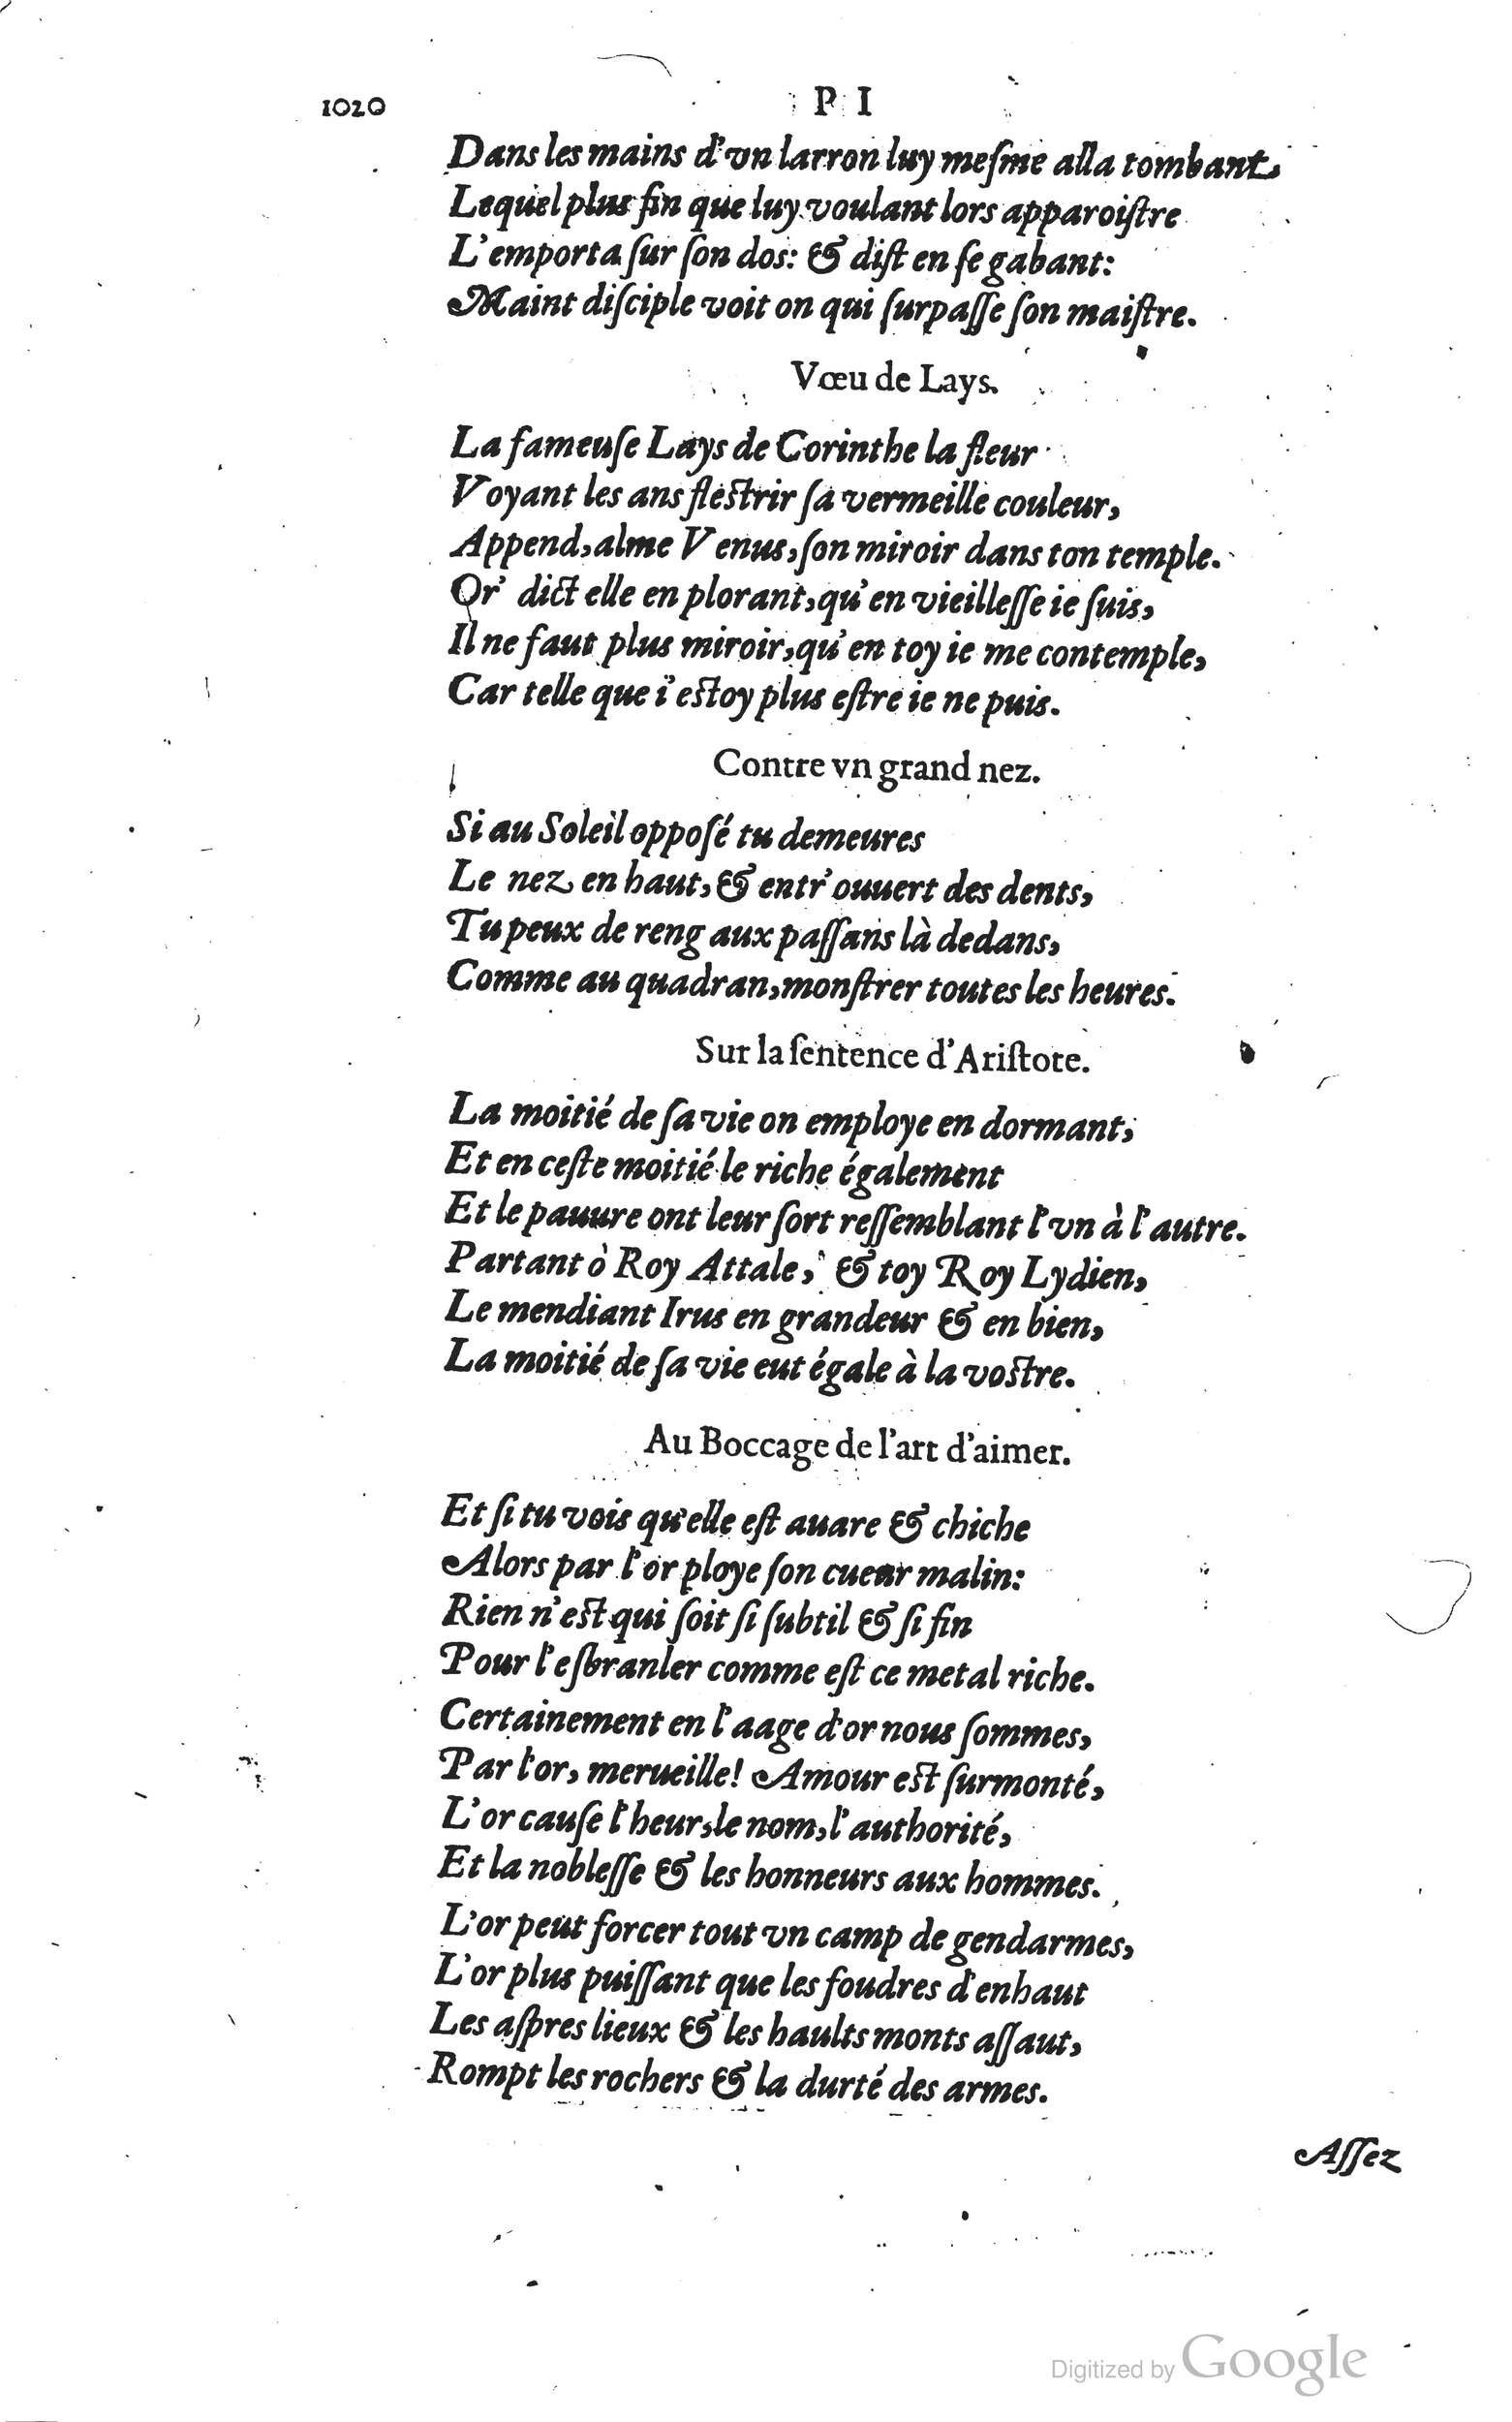 1020
P I
Dans les mains d'vn larron luy meſme alla tombant,
Lequel plus fin que luy voulant lors apparoiſtre
L'emporta ſur ſon dos: & diſt en ſe gabant:
Maint diſciple voit on qui ſurpaſſe ſon maiſtre.
Vœu de Lays.
La fameuſe Lays de Corinthe la fleur
Voyant les ans fleſtrir ſa vermeille couleur,
Append, alme Venus, ſon miroir dans ton temple.
Or' dict elle en plorant, qu'en vieilleſſe ie ſuis,
Il ne faut plus miroir, qu'en toy ie me contemple,
Car telle que i'eſtoy plus eſtre ie ne puis.
Contre vn grand nez.
Si au Soleil oppoſé tu demeures
Le nez en haut, & entr'ouuert des dents,
Tu peux de reng aux paſſans là dedans,
Comme au quadran, monſtrer toutes les heures.
Sur la ſentence d'Ariſtote.
La moitié de ſa vie on employe en dormant,
Et en ceſte moitié le riche également
Et le pauure ont leur ſort reſſemblant l'vn à l'autre.
Partant ò Roy Attale, & toy Roy Lydien,
Le mendiant Irus en grandeur & en bien,
La moitié de ſa vie eut égale à la voſtre.
Au Boccage de l'art d'aimer.
Et ſi tu vois qu'elle eſt auare & chiche
Alors par l'or ploye ſon cueur malin:
Rien n'eſt qui ſoit ſi ſubtil & ſi fin
Pour l'eſbranler comme eſt ce metal riche.
Certainement en l'aage d'or nous ſommes,
Par l'or, merueille! Amour eſt ſurmonté,
L'or cauſe l'heur, le nom, l'authorité,
Et la nobleſſe & les honneurs aux hommes.
L'or peut forcer tout vn camp de gendarmes,
L'or plus puiſſant que les foudres d'enhaut
Les aſpres lieux & les haults monts aſſaut,
Rompt les rochers & la durté des armes.
Aſſez
Digitized by Google